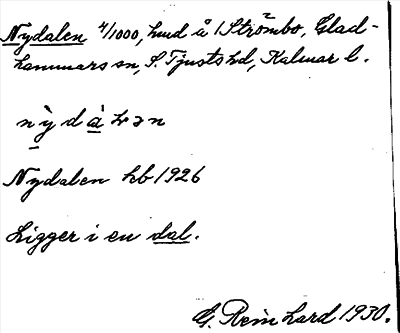 Nydalen 4/1000, hmd å 1 Strömbo, Glad-
hammars sn, S. Tjusts hd, Kalmar l.
Nydalen hb 1926
Ligger i en dal.
G. Reinhard 1930.